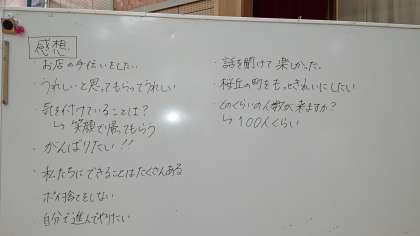 感想
・お店の手伝いをしたい
・うれしいと思ってもらってうれしい
・気を付けていることは?
↳ 笑顔で帰ってもらう
・がんばりたい!!
・私たちにできることはたくさんある
ポイ捨てをしない
自分で進んでやりたい
・話を聞けて楽しかった。
・桜丘の町をもっときれいにしたい
・どのくらいの人数が来ますか?
↳ 100人くらい